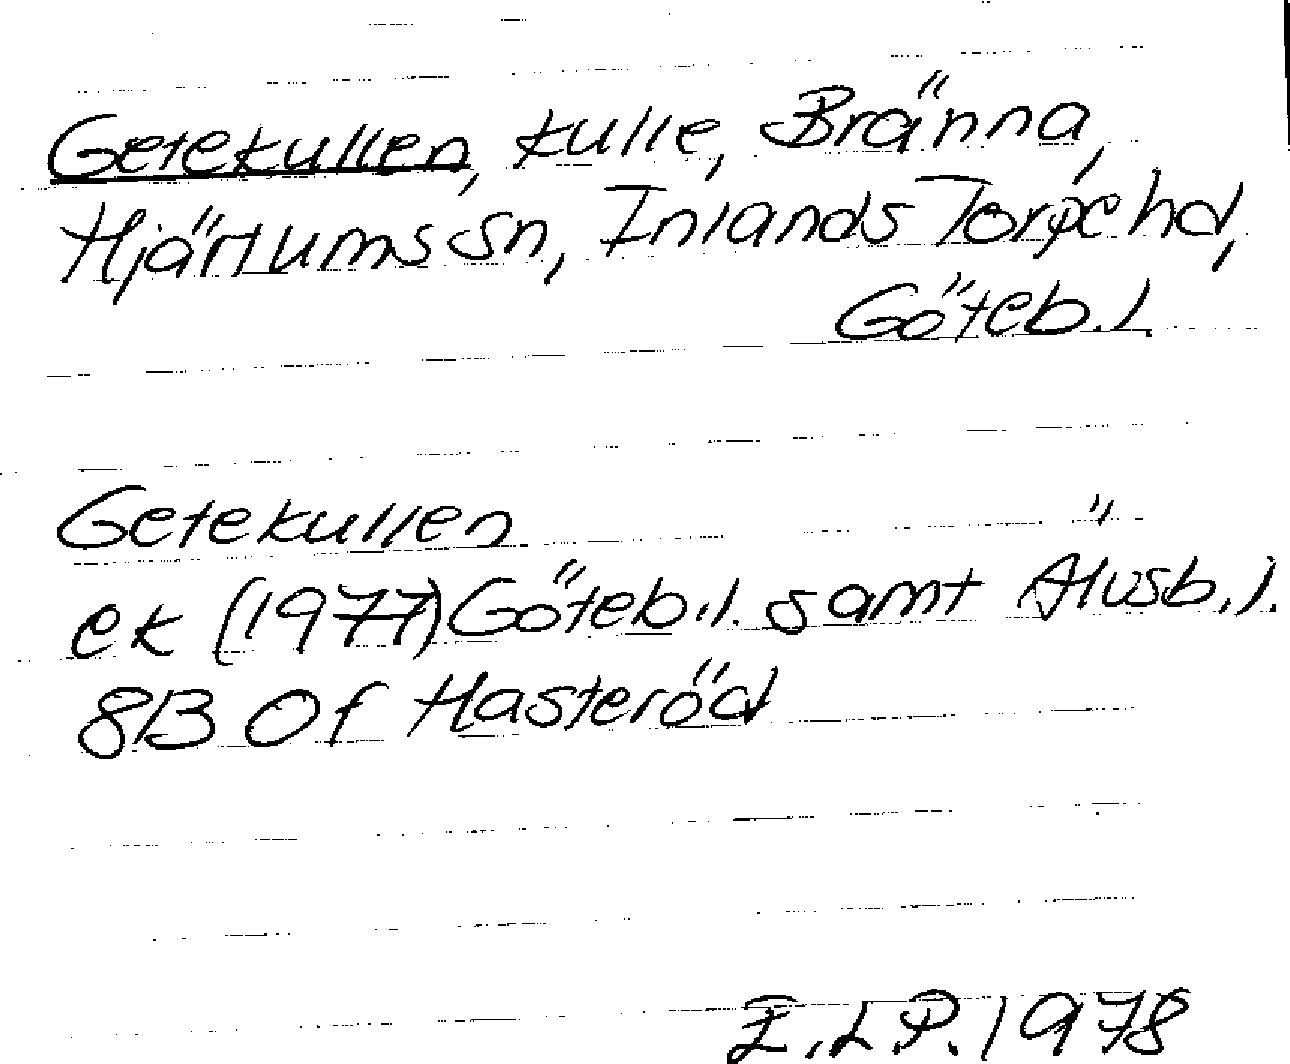 Getekullen, kulle, Bränna,
Hjärtums sn, Inlands Torpe hd,
Göteb.l.
Getekullen
ek (1977) Göteb.l. samt Älvsb.l.
8B 0f Hasteröd
E.L.P. 1978